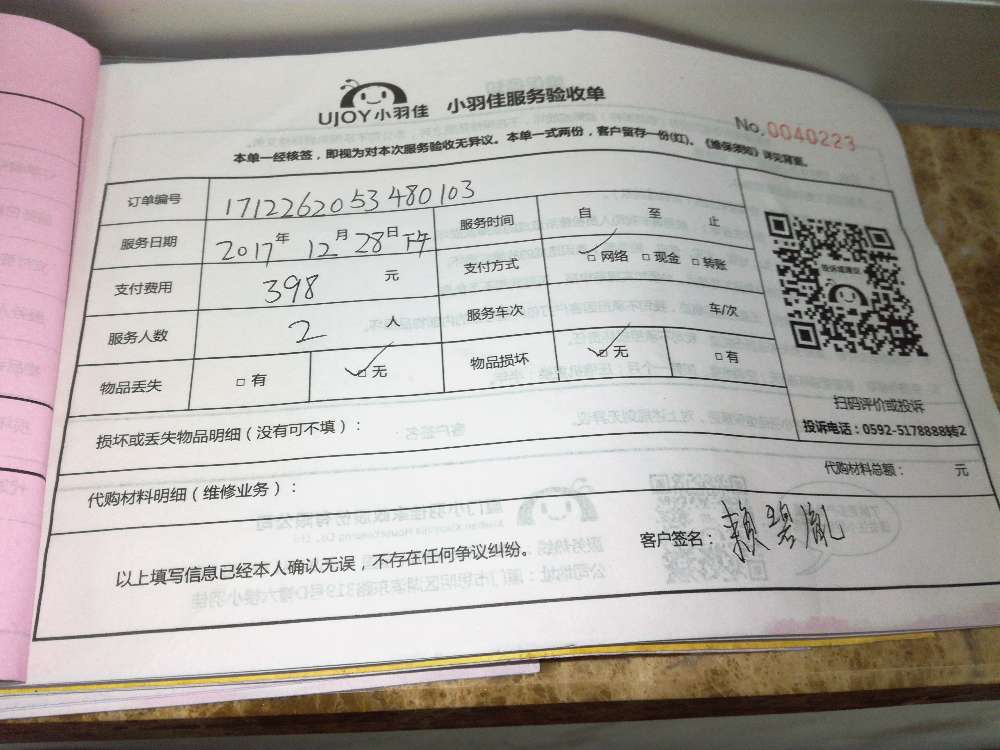 UJOY小羽佳 小羽佳服务验收单
No.0040223
本单一经核签，即视为对本次服务验收无异议。本单一式两份，客户留存一份(红)。《维保须知》详见背面。
订单编号 1712262053480103
服务日期 2017年12月28日下午 服务时间 自 至 止
支付费用 398 元 支付方式 □网络 □现金 □转账
服务人数 2 人 服务车次 车/次
物品丢失 □有 □无 物品损坏 □无 □有
投诉或建议
扫码评价或投诉
投诉电话：0592-5178888转2
损坏或丢失物品明细（没有可不填）：
代购材料明细（维修业务）： 代购材料总额： 元
以上填写信息已经本人确认无误，不存在任何争议纠纷。 客户签名：赖碧胤